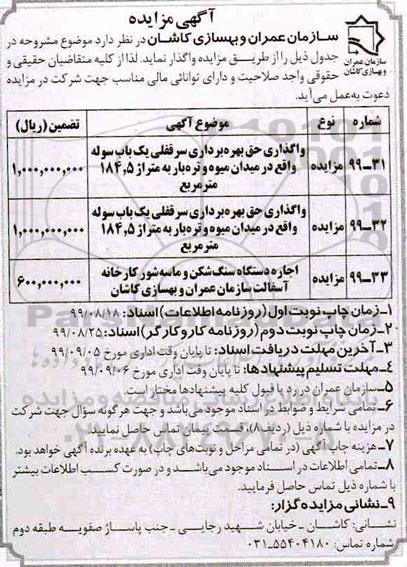 آگهی مزایده
سازمان عمران و بهسازی کاشان در نظر دارد موضوع مشروحه در
جدول ذیل را از طریق مزایده واگذار نماید. لذا از کلیه متقاضیان حقیقی و
حقوقی واجد صلاحیت و دارای توانائی مالی مناسب جهت شرکت در مزایده
دعوت به‌عمل می‌آید.
سازمان عمران
و بهسازی کاشان
شماره نوع موضوع آگهی تضمین (ریال)
۳۱-۹۹ مزایده واگذاری حق بهره‌برداری سرقفلی یک باب سوله
واقع در میدان میوه و تره‌بار به متراژ ۱۸۴,۵
مترمربع ۱,۰۰۰,۰۰۰,۰۰۰
۳۲-۹۹ مزایده واگذاری حق بهره‌برداری سرقفلی یک باب سوله
واقع در میدان میوه و تره‌بار به متراژ ۱۸۴,۵
مترمربع ۱,۰۰۰,۰۰۰,۰۰۰
۳۳-۹۹ مزایده اجاره دستگاه سنگ‌شکن و ماسه‌شور کارخانه
آسفالت سازمان عمران و بهسازی کاشان ۶۰۰,۰۰۰,۰۰۰
۱-زمان چاپ نوبت اول (روزنامه اطلاعات) اسناد: ۹۹/۰۸/۱۸
۲-زمان چاپ نوبت دوم (روزنامه کار و کارگر) اسناد: ۹۹/۰۸/۲۵
۳-آخرین مهلت دریافت اسناد: تا پایان وقت اداری مورخ ۹۹/۰۹/۰۵
۴-مهلت تسلیم پیشنهادها: تا پایان وقت اداری مورخ ۹۹/۰۹/۰۶
۵-سازمان عمران در رد یا قبول کلیه پیشنهادها مختار است.
۶-تمامی شرایط و ضوابط در اسناد موجود می‌باشد و جهت هرگونه سؤال جهت شرکت
در مزایده با شماره ذیل (ردیف۸)، قسمت پیمان تماس حاصل نمایید.
۷-هزینه چاپ آگهی (در تمامی مراحل و نوبت‌های چاپ) به عهده برنده آگهی خواهد بود.
۸-تمامی اطلاعات در اسناد موجود می‌باشد و در صورت کسب اطلاعات بیشتر
با شماره ذیل تماس حاصل فرمایید.
۹-نشانی مزایده‌گزار:
نشانی: کاشان - خیابان شهید رجایی - جنب پاساژ صفویه طبقه دوم
شماره تماس: ۵۵۴۰۴۱۸۰-۰۳۱